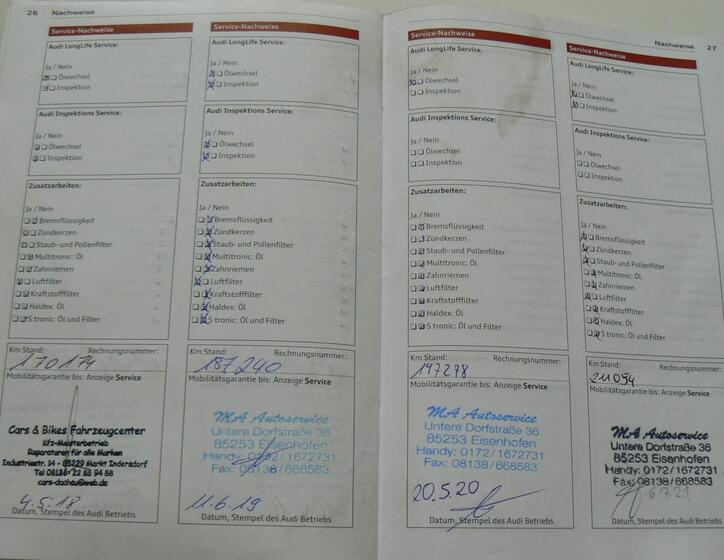 26 Nachweise
Service-Nachweise
Audi LongLife Service:
Ja / Nein
Ölwechsel
Inspektion
Audi Inspektions Service:
Ja / Nein
Ölwechsel
Inspektion
Zusatzarbeiten:
Ja / Nein
Bremsflüssigkeit
Zündkerzen
Staub- und Pollenfilter
Multitronic: Öl
Zahnriemen
Luftfilter
Kraftstofffilter
Haldex: Öl
S tronic: Öl und Filter
Km Stand: Rechnungsnummer:
170174
Mobilitätsgarantie bis: Anzeige Service
Cars & Bikes Fahrzeugcenter
Kfz-Meisterbetrieb
Reparaturen für alle Marken
Industriestr. 14 - 85229 Markt Indersdorf
cars-dachau@web.de
4.5.18
Datum, Stempel des Audi Betriebs
Service-Nachweise
Audi LongLife Service:
Ja / Nein
Ölwechsel
Inspektion
Audi Inspektions Service:
Ja / Nein
Ölwechsel
Inspektion
Zusatzarbeiten:
Ja / Nein
Bremsflüssigkeit
Zündkerzen
Staub- und Pollenfilter
Multitronic: Öl
Zahnriemen
Luftfilter
Kraftstofffilter
Haldex: Öl
S tronic: Öl und Filter
Km Stand: Rechnungsnummer:
187240
Mobilitätsgarantie bis: Anzeige Service
MA Autoservice
Untere Dorfstraße 36
85253 Eisenhofen
Handy: 0172/1672731
Fax: 08138/668583
11.6.19
Datum, Stempel des Audi Betriebs
Service-Nachweise
Audi LongLife Service:
Ja / Nein
Ölwechsel
Inspektion
Audi Inspektions Service:
Ja / Nein
Ölwechsel
Inspektion
Zusatzarbeiten:
Ja / Nein
Bremsflüssigkeit
Zündkerzen
Staub- und Pollenfilter
Multitronic: Öl
Zahnriemen
Luftfilter
Kraftstofffilter
Haldex: Öl
S tronic: Öl und Filter
Km Stand: Rechnungsnummer:
197278
Mobilitätsgarantie bis: Anzeige Service
MA Autoservice
Untere Dorfstraße 36
85253 Eisenhofen
Handy: 0172/1672731
Fax: 08138/668583
20.5.20
Datum, Stempel des Audi Betriebs
Nachweise 27
Service-Nachweise
Audi LongLife Service:
Ja / Nein
Ölwechsel
Inspektion
Audi Inspektions Service:
Ja / Nein
Ölwechsel
Inspektion
Zusatzarbeiten:
Ja / Nein
Bremsflüssigkeit
Zündkerzen
Staub- und Pollenfilter
Multitronic: Öl
Zahnriemen
Luftfilter
Kraftstofffilter
Haldex: Öl
S tronic: Öl und Filter
Km Stand: Rechnungsnummer:
211094
Mobilitätsgarantie bis: Anzeige Service
MA Autoservice
Untere Dorfstraße 36
85253 Eisenhofen
Handy: 0172/1672731
Fax: 08138/668583
6.7.21
Datum, Stempel des Audi Betriebs